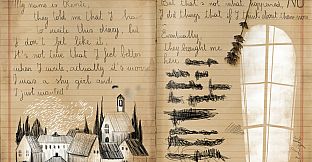 My name is René,
they told me that I ha
to write this diary, but
I don't like it.
It's not true that I feel better
when I write, actually, it's worse
I was a shy girl and
I just wanted
But that's not what happened, NO
I did things that if I think about them now
Eventually
they brought me
here